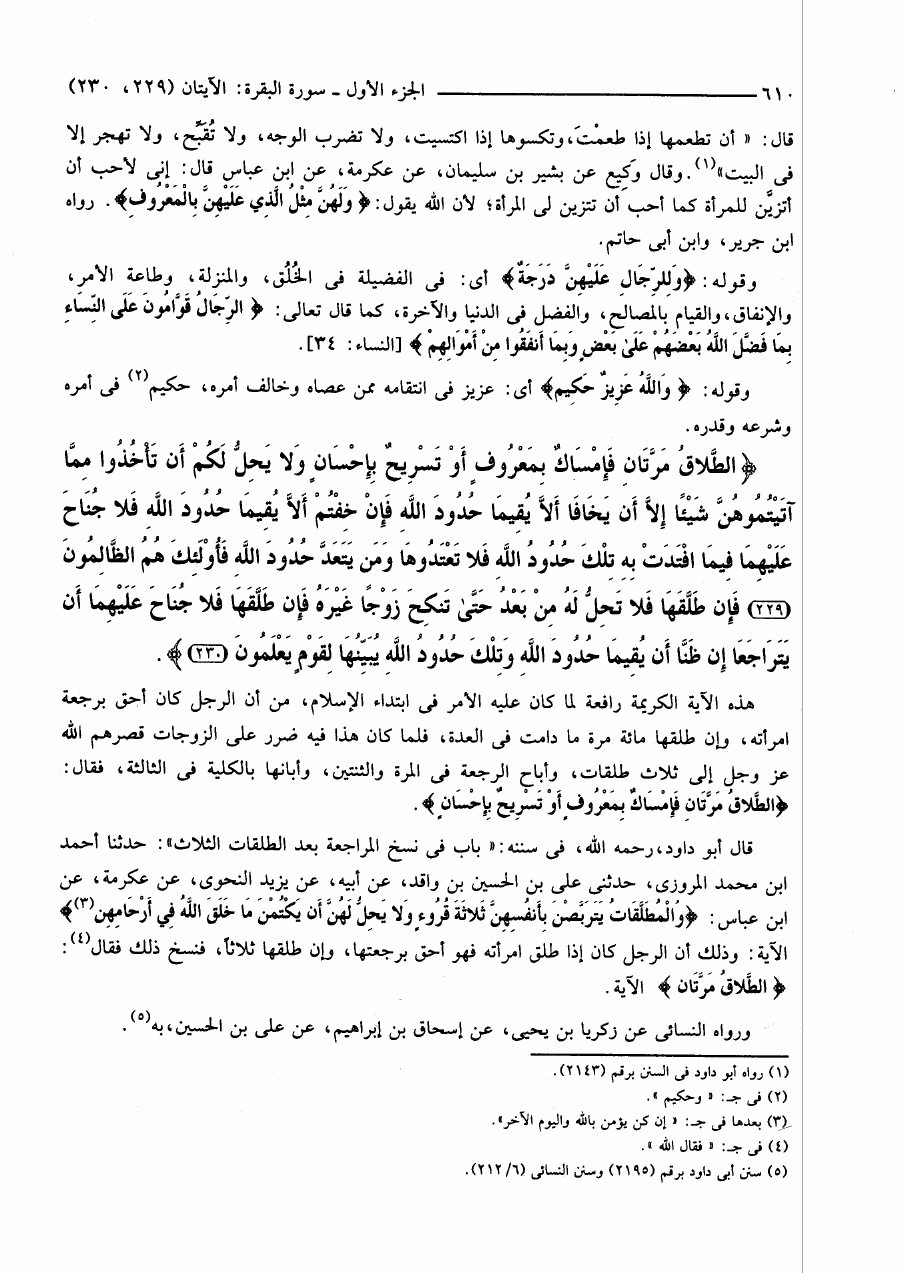 ٦١٠ ــــــــــــــــــــــــــــ الجزء الأول ـ سورة البقرة: الآيتان (٢٢٩، ٢٣٠)
قال: « أن تطعمها إذا طعمْتَ، وتكسوها إذا اكتسيت، ولا تضرب الوجه، ولا تُقَبِّح، ولا تهجر إلا
فى البيت»(١). وقال وَكِيع عن بشير بن سليمان، عن عكرمة، عن ابن عباس قال: إنى لأحب أن
أتزيَّن للمرأة كما أحب أن تتزين لى المرأة؛ لأن الله يقول: ﴿ وَلَهُنَّ مِثْلُ الَّذِي عَلَيْهِنَّ بِالْمَعْرُوفِ﴾. رواه
ابن جرير، وابن أبى حاتم.
وقوله: ﴿وَلِلرِّجَالِ عَلَيْهِنَّ دَرَجَةٌ﴾ أى: فى الفضيلة فى الخُلُق، والمنزلة، وطاعة الأمر،
والإنفاق، والقيام بالمصالح، والفضل فى الدنيا والآخرة، كما قال تعالى: ﴿ الرِّجَالُ قَوَّامُونَ عَلَى النِّسَاءِ
بِمَا فَضَّلَ اللَّهُ بَعْضَهُمْ عَلَىٰ بَعْضٍ وَبِمَا أَنفَقُوا مِنْ أَمْوَالِهِمْ ﴾ [النساء: ٣٤].
وقوله: ﴿ وَاللَّهُ عَزِيزٌ حَكِيمٌ﴾ أى: عزيز فى انتقامه ممن عصاه وخالف أمره، حكيم(٢) فى أمره
وشرعه وقدره.
﴿ الطَّلاقُ مَرَّتَانِ فَإِمْسَاكٌ بِمَعْرُوفٍ أَوْ تَسْرِيحٌ بِإِحْسَانٍ وَلا يَحِلُّ لَكُمْ أَن تَأْخُذُوا مِمَّا
آتَيْتُمُوهُنَّ شَيْئًا إِلاَّ أَن يَخَافَا أَلاَّ يُقِيمَا حُدُودَ اللَّهِ فَإِنْ خِفْتُمْ أَلاَّ يُقِيمَا حُدُودَ اللَّهِ فَلا جُنَاحَ
عَلَيْهِمَا فِيمَا افْتَدَتْ بِهِ تِلْكَ حُدُودُ اللَّهِ فَلا تَعْتَدُوهَا وَمَن يَتَعَدَّ حُدُودَ اللَّهِ فَأُوْلَئِكَ هُمُ الظَّالِمُونَ
(٢٢٩) فَإِن طَلَّقَهَا فَلا تَحِلُّ لَهُ مِنْ بَعْدُ حَتَّىٰ تَنكِحَ زَوْجًا غَيْرَهُ فَإِن طَلَّقَهَا فَلا جُنَاحَ عَلَيْهِمَا أَن
يَتَرَاجَعَا إِن ظَنَّا أَن يُقِيمَا حُدُودَ اللَّهِ وَتِلْكَ حُدُودُ اللَّهِ يُبَيِّنُهَا لِقَوْمٍ يَعْلَمُونَ (٢٣٠) ﴾.
هذه الآية الكريمة رافعة لما كان عليه الأمر فى ابتداء الإسلام، من أن الرجل كان أحق برجعة
امرأته، وإن طلقها مائة مرة ما دامت فى العدة، فلما كان هذا فيه ضرر على الزوجات قصرهم الله
عز وجل إلى ثلاث طلقات، وأباح الرجعة فى المرة والثنتين، وأبانها بالكلية فى الثالثة، فقال:
﴿الطَّلاقُ مَرَّتَانِ فَإِمْسَاكٌ بِمَعْرُوفٍ أَوْ تَسْرِيحٌ بِإِحْسَانٍ ﴾.
قال أبو داود، رحمه الله، فى سننه: « باب فى نسخ المراجعة بعد الطلقات الثلاث»: حدثنا أحمد
ابن محمد المروزى، حدثنى على بن الحسين بن واقد، عن أبيه، عن يزيد النحوى، عن عكرمة، عن
ابن عباس: ﴿وَالْمُطَلَّقَاتُ يَتَرَبَّصْنَ بِأَنفُسِهِنَّ ثَلاثَةَ قُرُوءٍ وَلا يَحِلُّ لَهُنَّ أَن يَكْتُمْنَ مَا خَلَقَ اللَّهُ فِي أَرْحَامِهِنَّ(٣)﴾
الآية: وذلك أن الرجل كان إذا طلق امرأته فهو أحق برجعتها، وإن طلقها ثلاثاً، فنسخ ذلك فقال(٤):
﴿ الطَّلاقُ مَرَّتَانِ ﴾ الآية.
ورواه النسائى عن زكريا بن يحيى، عن إسحاق بن إبراهيم، عن على بن الحسين، به(٥).
(١) رواه أبو داود فى السنن برقم (٢١٤٣).
(٢) فى جـ: « وحكيم ».
(٣) بعدها فى جـ: « إن كن يؤمن بالله واليوم الآخر».
(٤) فى جـ: « فقال الله ».
(٥) سنن أبى داود برقم (٢١٩٥) وسنن النسائى (٦/ ٢١٢).